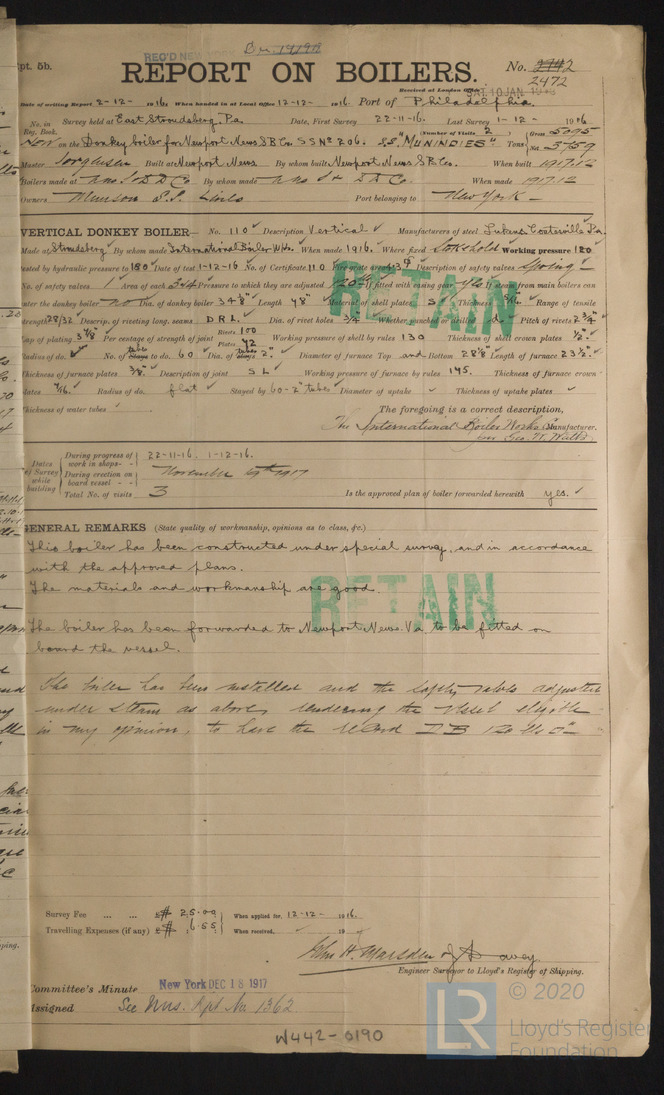 Rpt. 5b.
REC'D NEW YORK Dec. 19 1918
REPORT ON BOILERS.
No. 2742
2472
Received at London Office SAT. 10 JAN 1918
Date of writing Report 2-12- 1916. When handed in at Local Office 12-12- 1916. Port of Philadelphia.
No. in Reg. Book. Survey held at East Stroudsburg, Pa. Date, First Survey 22-11-16. Last Survey 1-12- 1916
(Number of Visits 2 )
New on the Donkey boiler for Newport News S.B. Co. SS No 206. SS "MUNINDIES" Tons Gross 5095 Net 3759
Master Built at Newport News By whom built Newport News S.B. Co. When built 1917.12
Boilers made at By whom made When made 1917.12
Owners Munson S.S. Line Port belonging to New York
VERTICAL DONKEY BOILER— No. 110 Description Vertical Manufacturers of steel Lukens, Coatesville, Pa.
Made at Stroudsberg By whom made International Boiler Wks. When made 1916. Where fixed Stokehold Working pressure 120
tested by hydraulic pressure to 180 Date of test 1-12-16 No. of Certificate 110 Fire grate area Description of safety valves Spring
No. of safety valves 1 Area of each Pressure to which they are adjusted 120 If fitted with easing gear yes If steam from main boilers can
enter the donkey boiler no Dia. of donkey boiler 34 3/8" Length 48" Material of shell plates S Thickness Range of tensile
strength 28/32 Descrip. of riveting long. seams D.R.L. Dia. of rivet holes 3/4 Whether punched or drilled d Pitch of rivets 2 3/4"
Lap of plating 3 7/8" Per centage of strength of joint Rivets 100 Plates 72 Working pressure of shell by rules 130 Thickness of shell crown plates 1/2"
Radius of do. No. of Stays tubes to do. 60 Dia. of stays tubes 2" Diameter of furnace Top and Bottom 28 5/8" Length of furnace 23 1/2"
Thickness of furnace plates 3/8" Description of joint S L Working pressure of furnace by rules 145. Thickness of furnace crown
plates 7/16. Radius of do. flat Stayed by 60-2" tubes Diameter of uptake Thickness of uptake plates
Thickness of water tubes
The foregoing is a correct description,
The International Boiler Works Co. Manufacturer.
per Geo. W. Watts
Dates of Survey while building
During progress of work in shops - - 22-11-16. 1-12-16.
During erection on board vessel - - November 1917
Total No. of visits 3 Is the approved plan of boiler forwarded herewith yes.
GENERAL REMARKS (State quality of workmanship, opinions as to class, &c.)
This boiler has been constructed under special survey, and in accordance
with the approved plans.
The materials and workmanship are good.
The boiler has been forwarded to Newport News, Va to be fitted on
board the vessel.
The boiler has been installed and the safety valves adjusted
under steam as above, rendering the vessel eligible
in my opinion, to have the record DB 120 lbs
RETAIN
RETAIN
Survey Fee ... ... $ 25.00 When applied for, 12-12- 1916.
Travelling Expenses (if any) $ 6.55 When received, 19
John H. Marsden
Engineer Surveyor to Lloyd's Register of Shipping.
Committee's Minute New York DEC 18 1917
Assigned See Nws. Rpt No. 1362
W442-0190
LR
© 2020
Lloyd's Register
Foundation